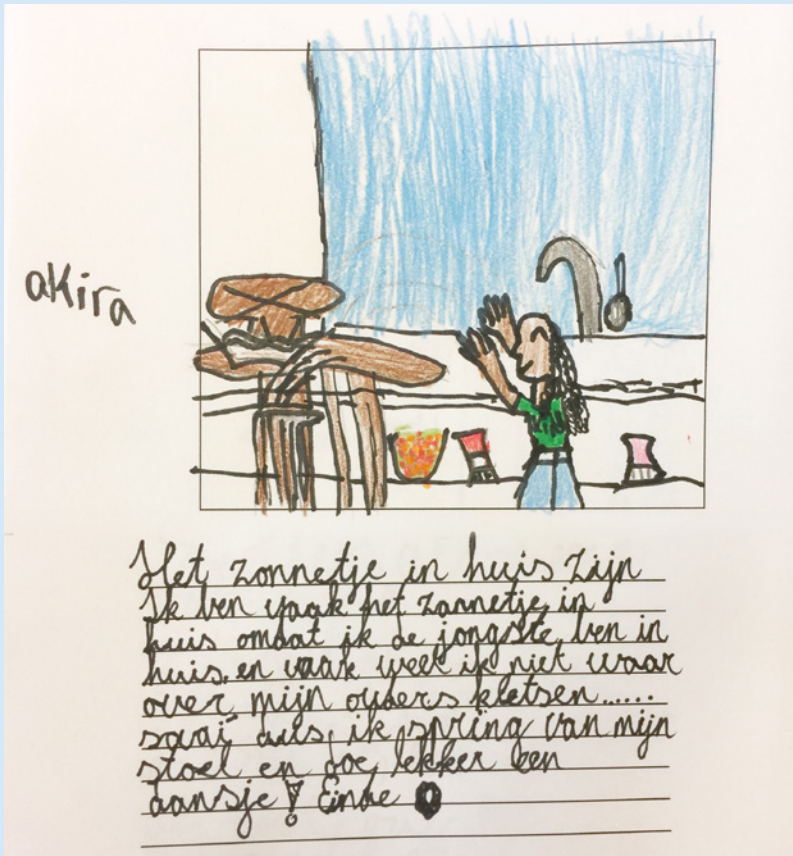 akira
Het zonnetje in huis zijn
Ik ben vaak het zonnetje in
huis omdat ik de jongste ben in
huis. en vaak weet ik niet waar
over mijn ouders kletsen......
saai dus, ik spring van mijn
stoel en doe lekker een
dansje! Einde